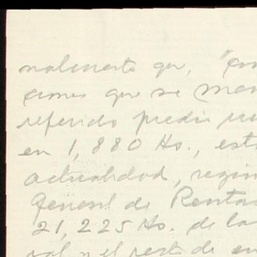 malmente que, "con
ciones que se men
referido predio ru
en 1,880 Hs., est
actualidad, regis
General de Rentas
21,225 Hs. de la
val y el resto de en